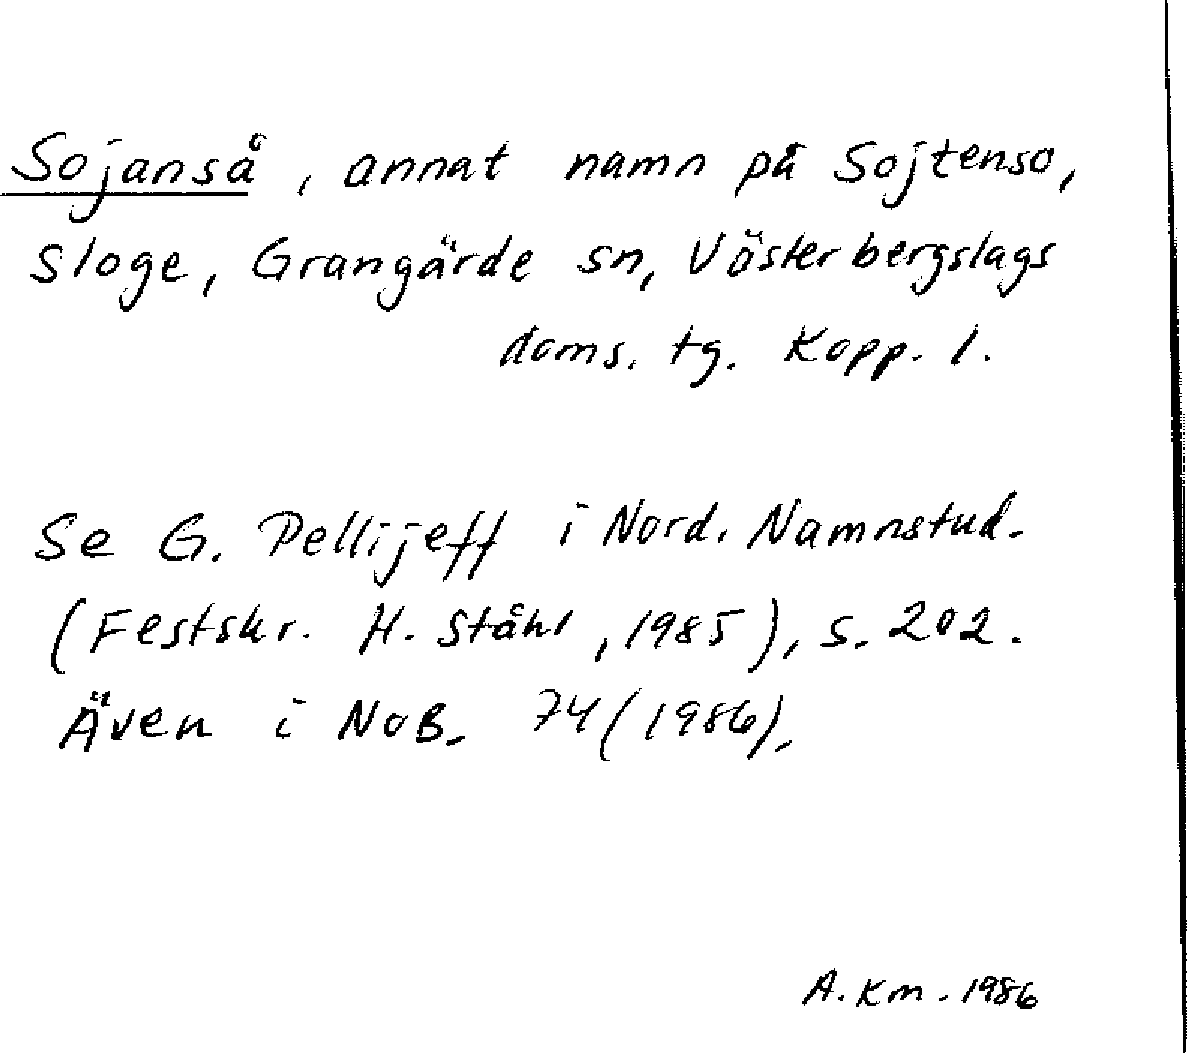 Sojanså, annat namn på Sojtenso,
Sloge, Grangärde sn, Västerbergslags
doms. tg. Kopp. l.
Se G. Pellijeff i Nord. Namnstud.
(Festskr. H. Ståhl, 1985), s. 202.
Även i NoB. 74 (1986).
A. Km. 1986